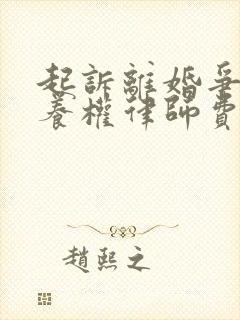 起訴離婚爭
養權律師費
趙熙之